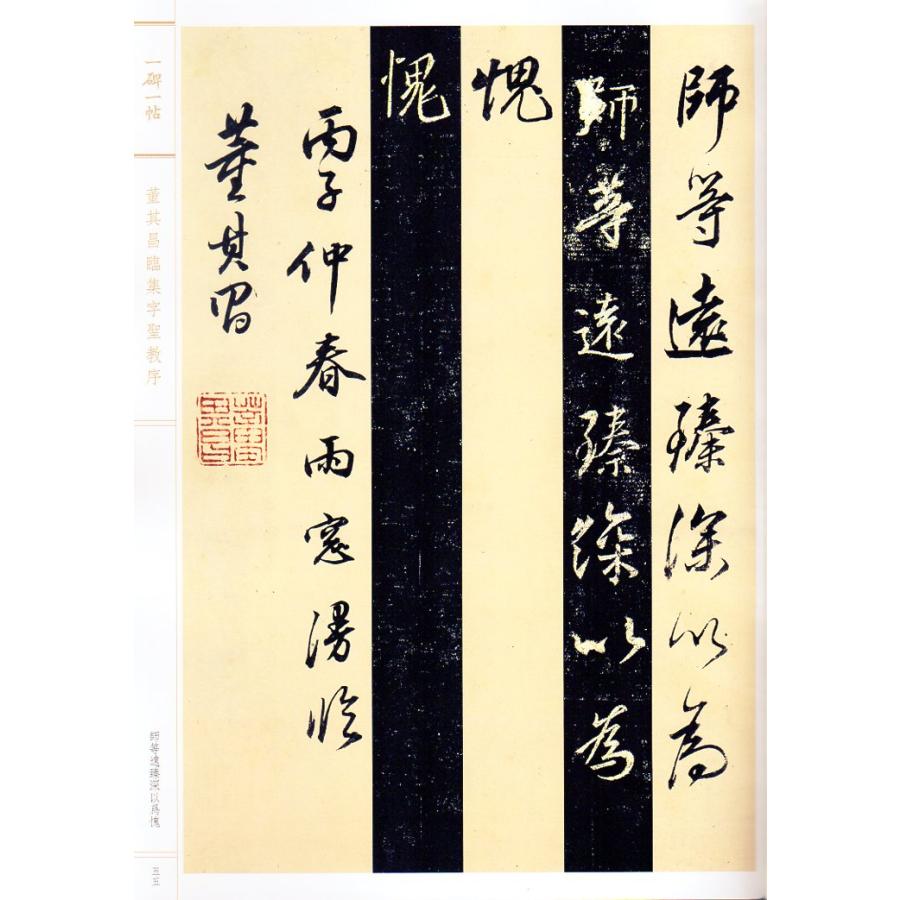 師等遠臻深以為
師等遠臻深以為
愧
愧
丙子仲春雨窓漫臨
董其昌
一碑一帖
董其昌臨集字聖教序
師等遠臻深以爲愧
五五